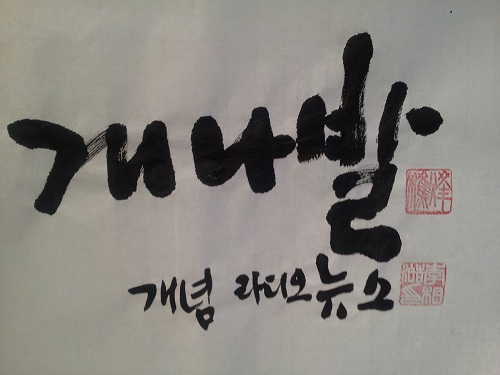 개나발
개념 라디오 뉴스